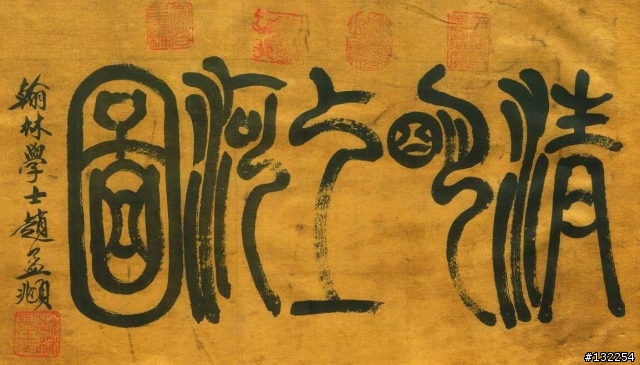 清明上河圖
翰林學士趙孟頫
#132254